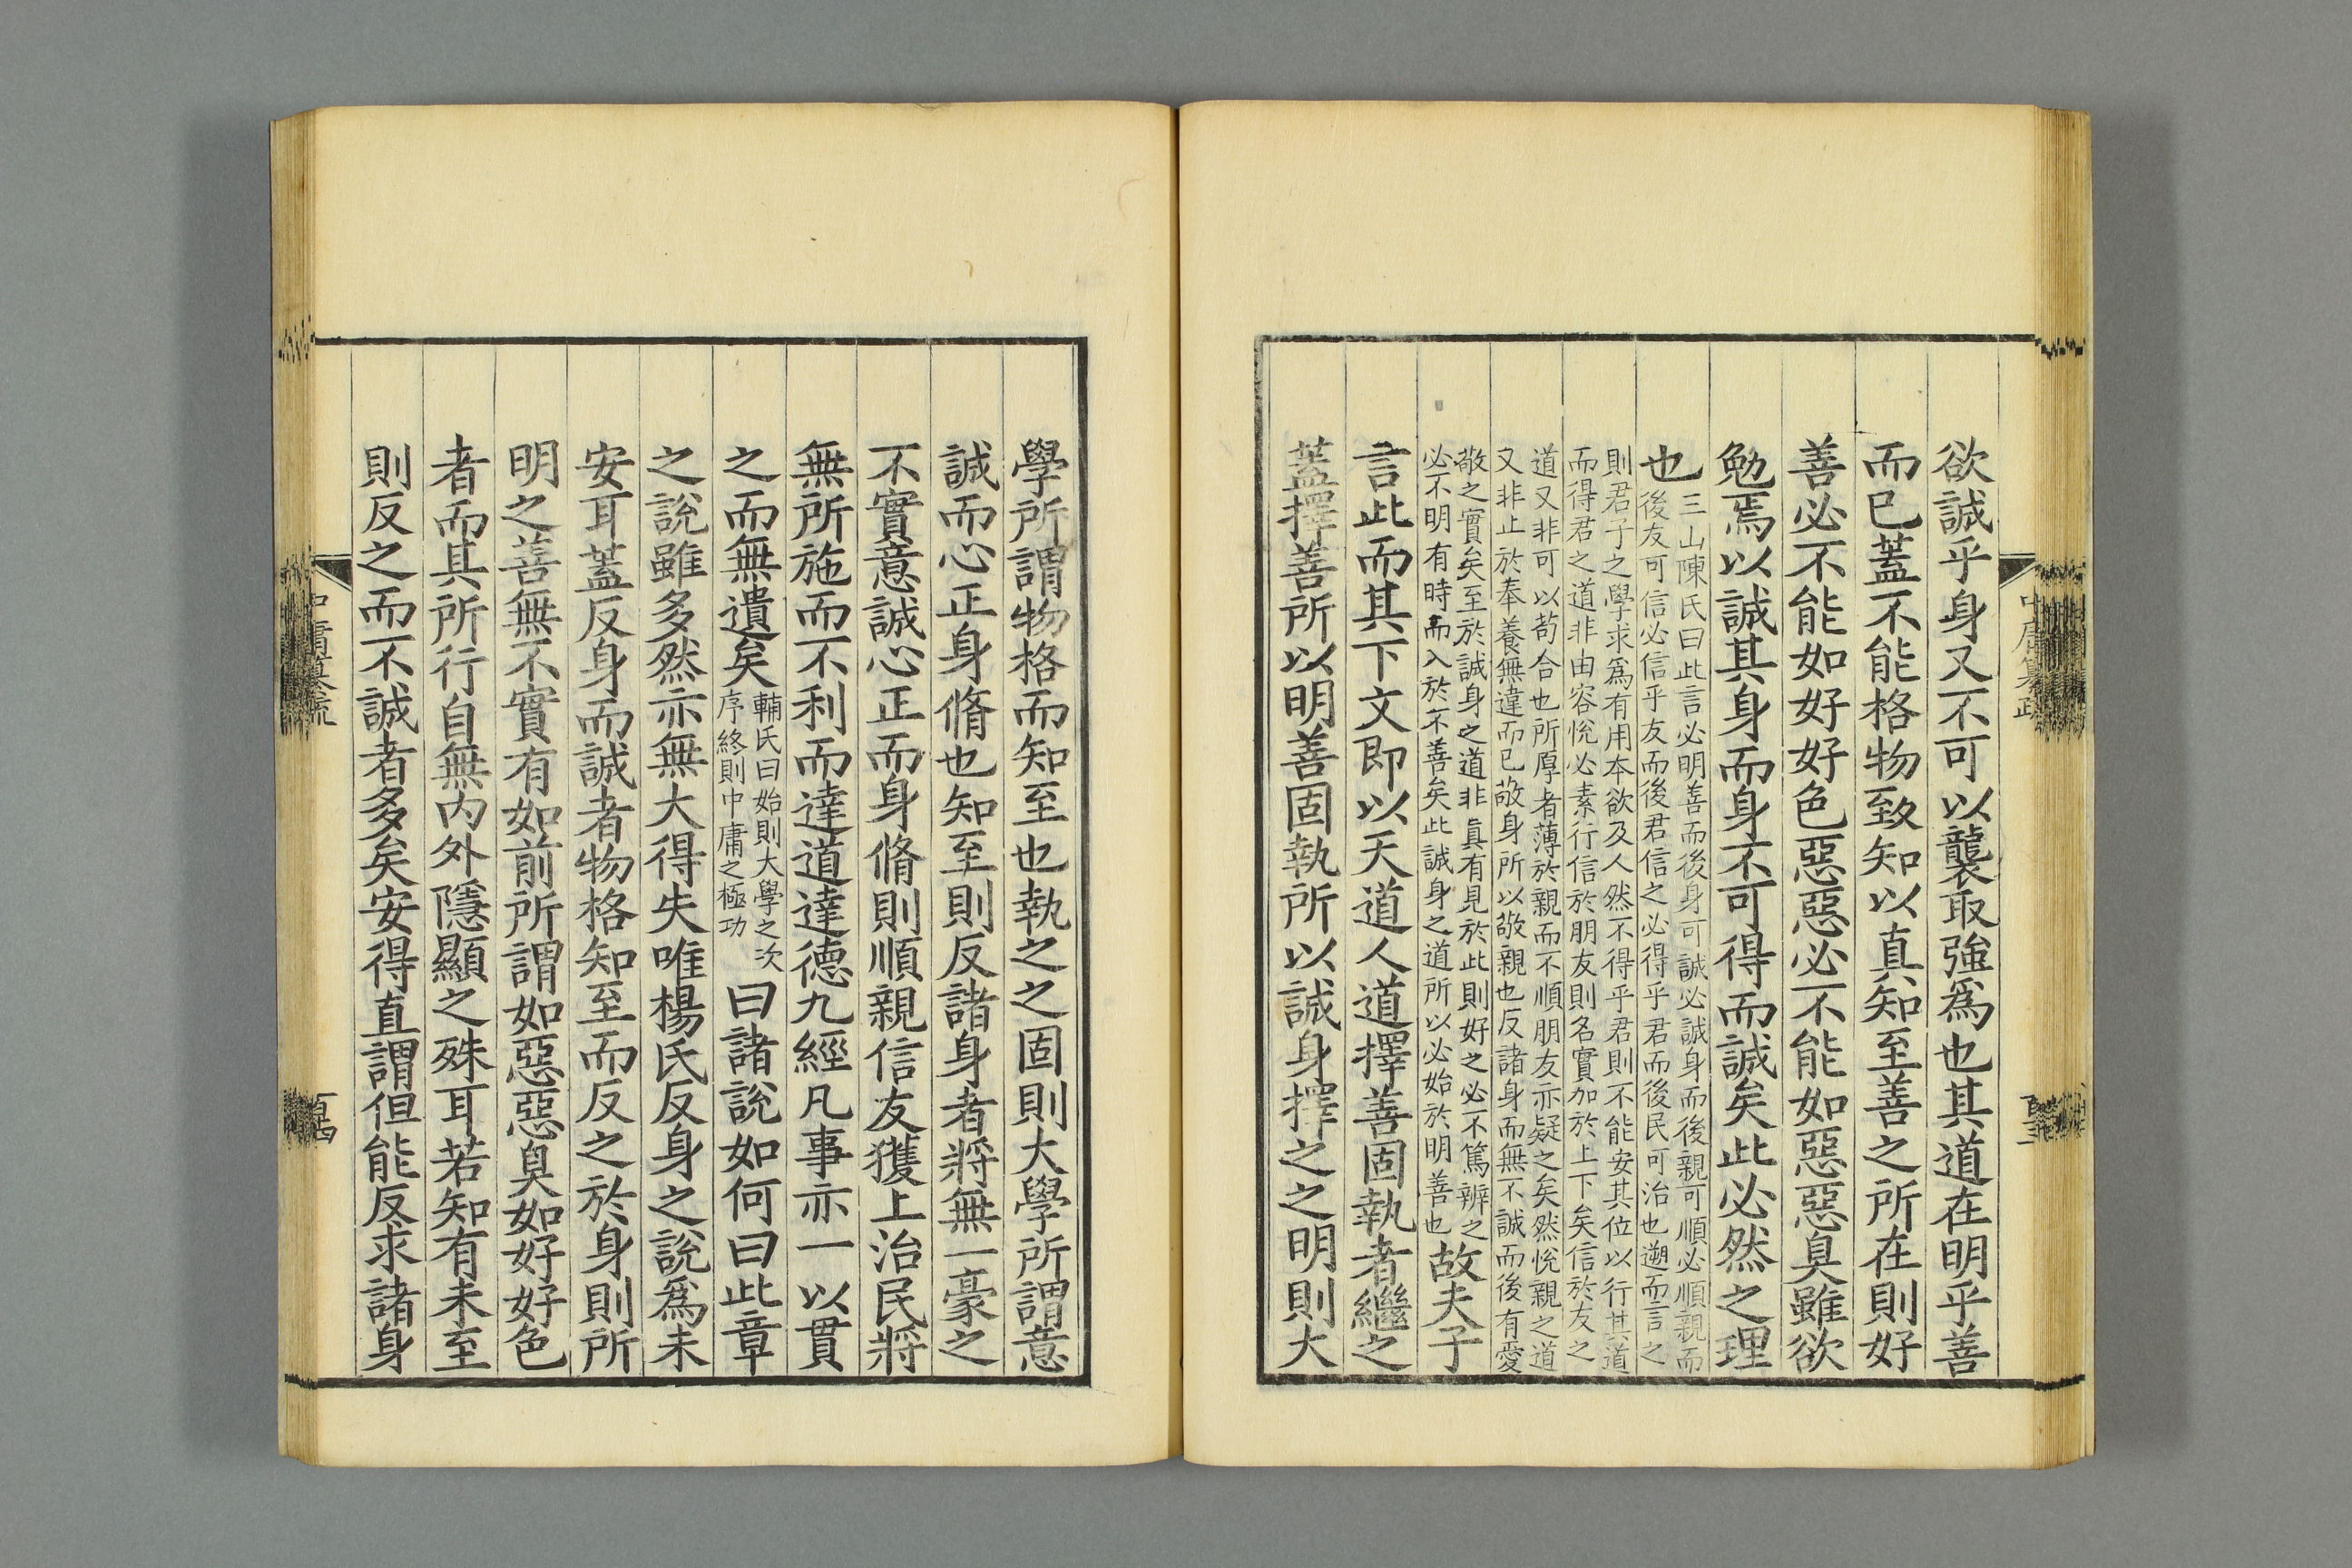 欲誠乎身又不可以襲取強爲也其道在明乎善
而已蓋不能格物致知以真知至善之所在則好
善必不能如好好色惡惡必不能如惡惡臭雖欲
勉焉以誠其身而身不可得而誠矣此必然之理
也
三山陳氏曰此言必明善而後身可誠必誠身而後親可順必順親而
後友可信必信乎友而後君信之必得乎君而後民可治也遡而言之
則君子之學求爲有用本欲及人然不得乎君則不能安其位以行其道
而得君之道非由容悅必素行信於朋友則名實加於上下矣信於友之
道又非可以苟合也所厚者薄於親而不順朋友亦疑之矣然悅親之道
又非止於奉養無違而已敬身所以敬親也反諸身而無不誠而後有愛
敬之實矣至於誠身之道非真有見於此則好之必不篤辨之
必不明有時而入於不善矣此誠身之道所以必始於明善也
故夫子
言此而其下文即以天道人道擇善固執者繼之
蓋擇善所以明善固執所以誠身擇之之明則大
中庸纂疏
學所謂物格而知至也執之之固則大學所謂意
誠而心正身脩也知至則反諸身者將無一豪之
不實意誠心正而身脩則順親信友獲上治民將
無所施而不利而達道達德九經凡事亦一以貫
之而無遺矣
輔氏曰始則大學之次
序終則中庸之極功
曰諸說如何曰此章
之說雖多然亦無大得失唯楊氏反身之說爲未
安耳蓋反身而誠者物格知至而反之於身則所
明之善無不實有如前所謂如惡惡臭如好好色
者而其所行自無內外隱顯之殊耳若知有未至
則反之而不誠者多矣安得直謂但能反求諸身
中庸纂疏
百四